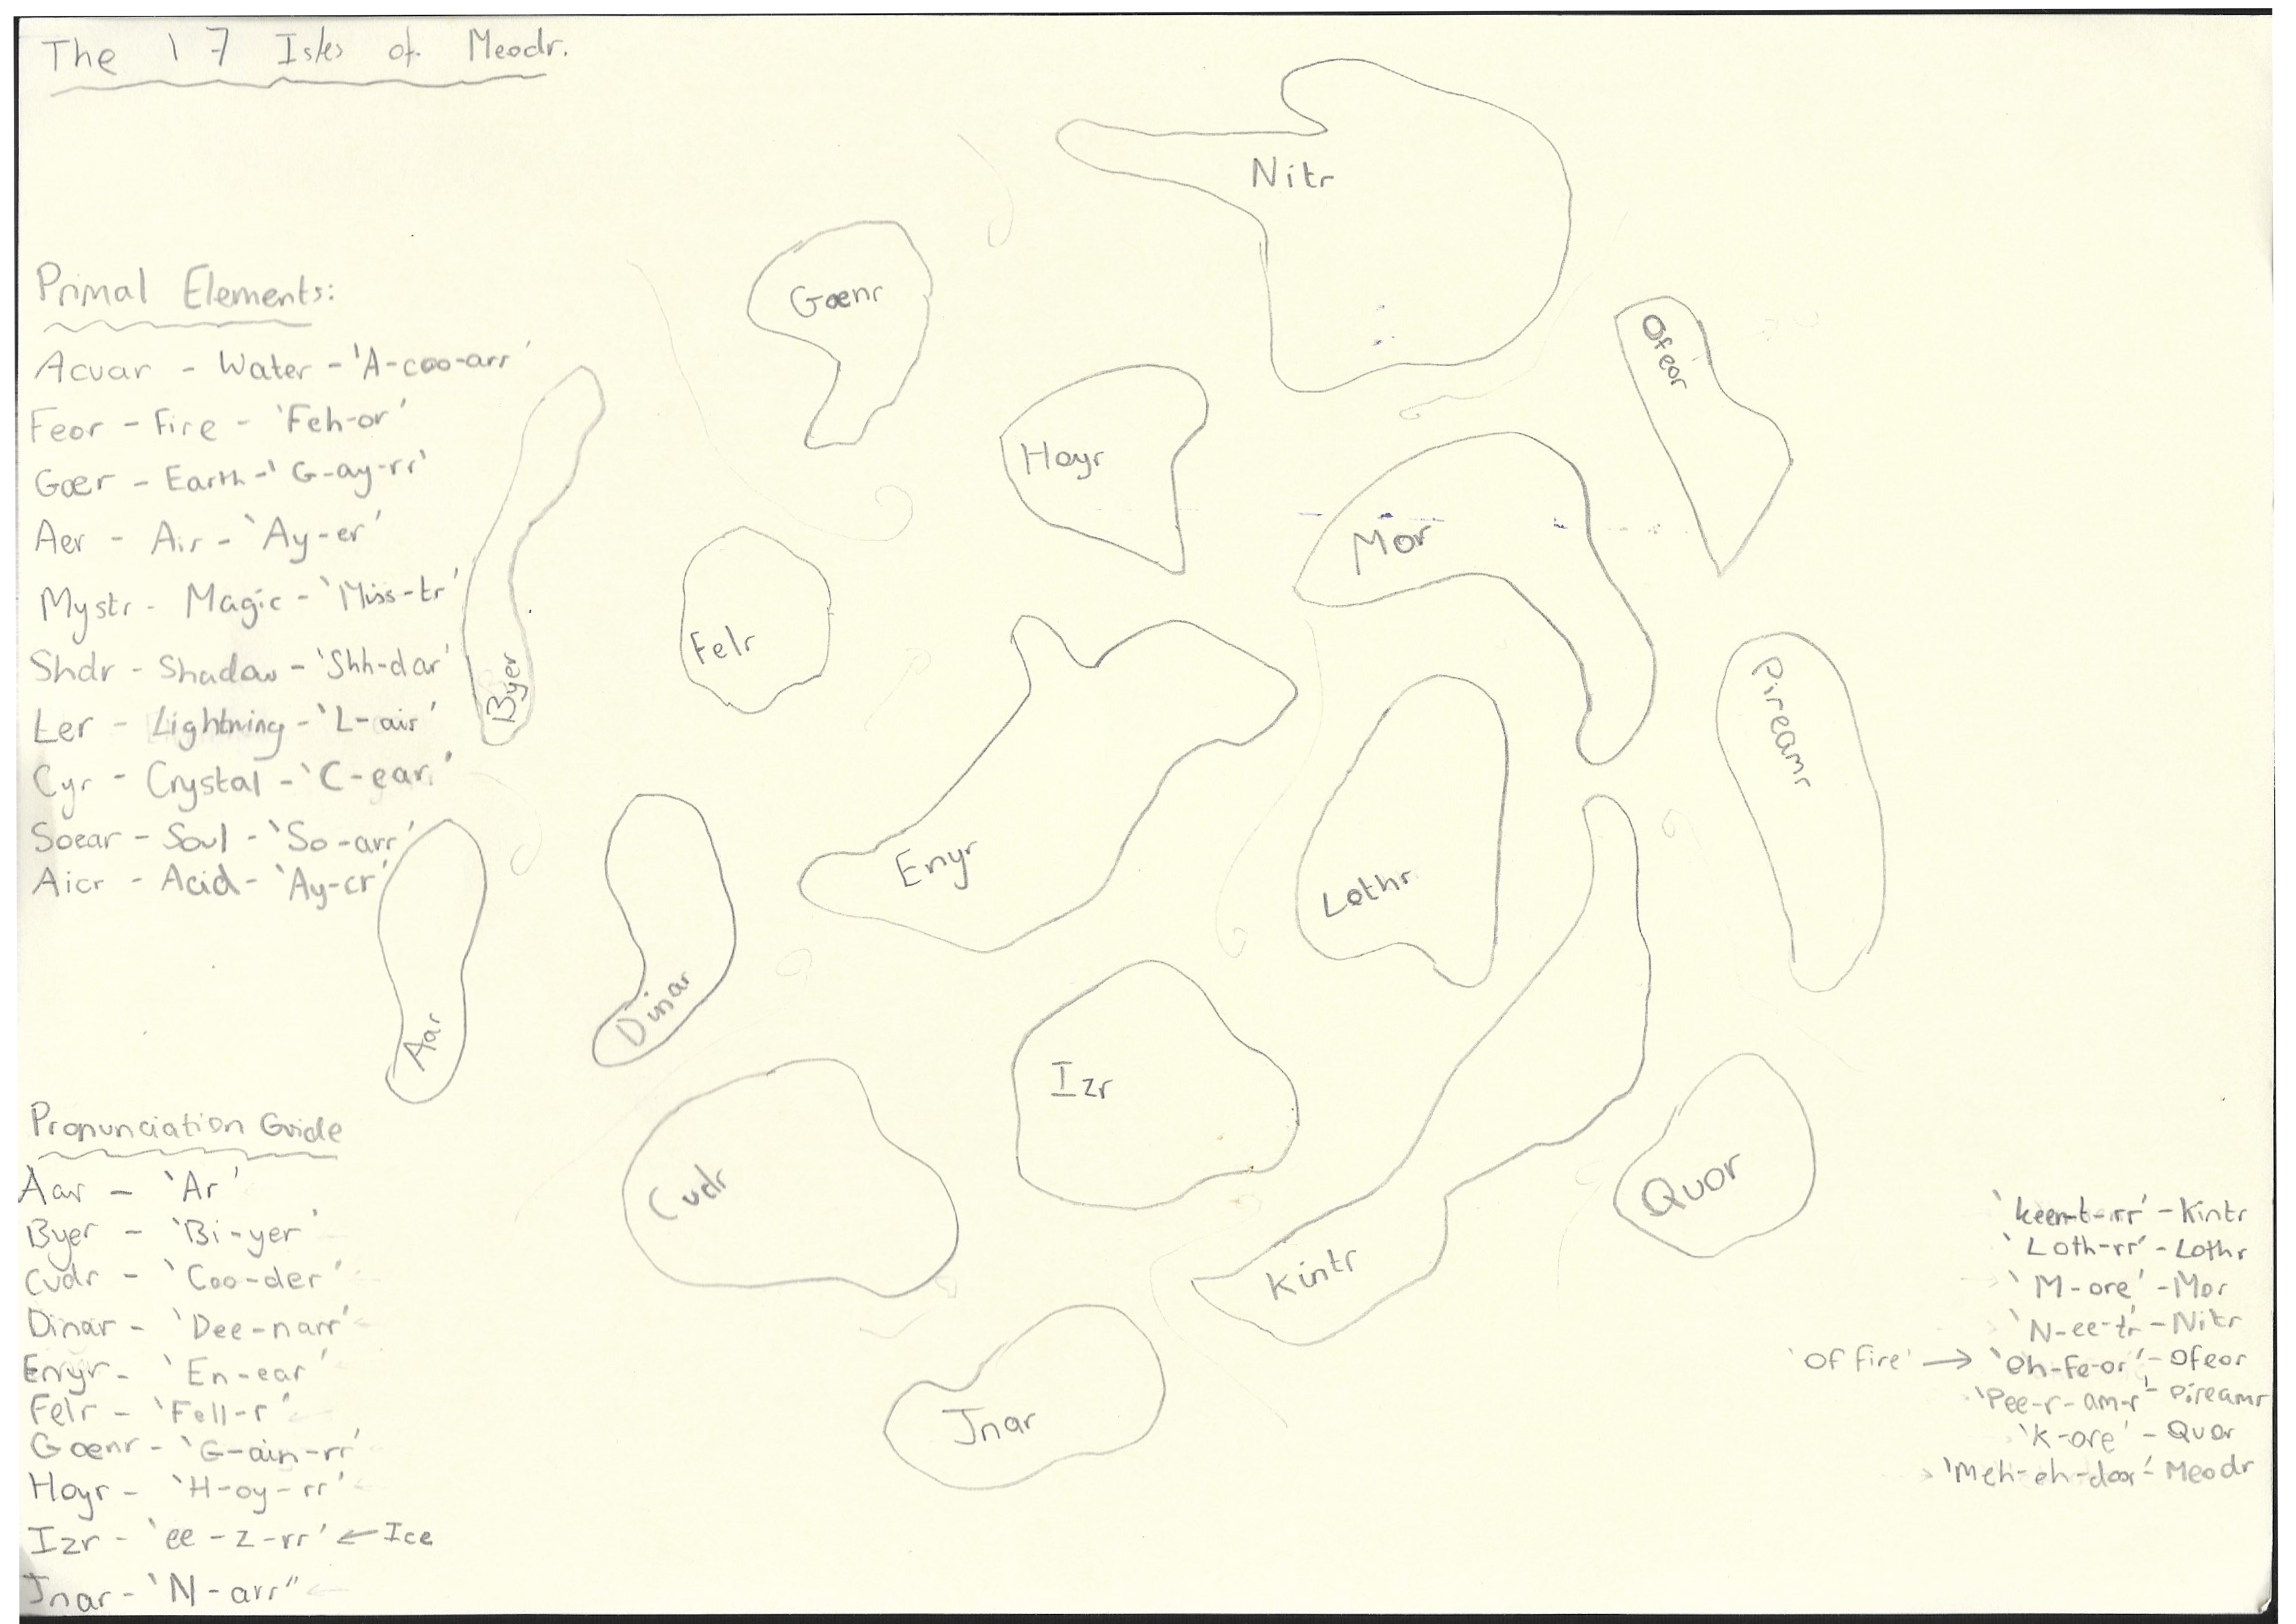 The 17 Isles of Meodr.
Nitr
Gœnr
Ofeor
Hoyr
Mor
Felr
Byer
Pireamr
Enyr
Lothr
Dinar
Aar
Izr
Cudr
Quor
Kintr
Jnar
Primal Elements:
Acuar - Water - 'A-coo-arr'
Feor - Fire - 'Feh-or'
Gœr - Earth - 'G-ay-rr'
Aer - Air - 'Ay-er'
Mystr - Magic - 'Miss-tr'
Shdr - Shadow - 'Shh-dar'
Ler - Lightning - 'L-air'
Cyr - Crystal - 'C-ear'
Soear - Soul - 'So-arr'
Aicr - Acid - 'Ay-cr'
Pronunciation Guide
Aar - 'Ar'
Byer - 'Bi-yer'
Cudr - 'Coo-der'
Dinar - 'Dee-narr'
Enyr - 'En-ear'
Felr - 'Fell-r'
Gœnr - 'G-ain-rr'
Hoyr - 'H-oy-rr'
Izr - 'ee-z-rr' ← Ice
Jnar - 'N-arr"
'keen-t-rr' - Kintr
'Loth-rr' - Lothr
'M-ore' - Mor
'N-ee-tr' - Nitr
'Of Fire' → 'Oh-Fe-or' - Ofeor
'Pee-r-am-r' - Pireamr
'K-ore' - Quor
'Meh-eh-door' - Meodr